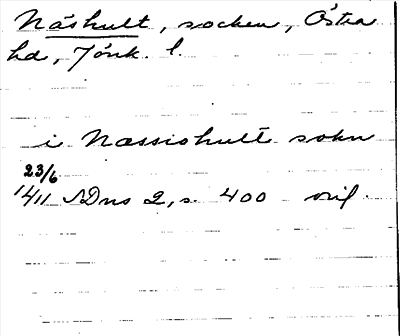 Näshult, socken, Östra
hd, Jönk. l.
i Nassiohult sokn
23/6
1411 SDns 2, s. 400 orig.